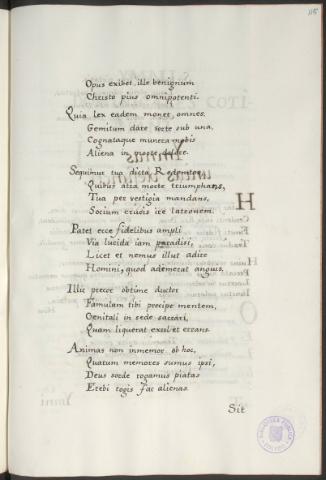 115
Opus exibet ille benignum
Christo pius omnipotenti.
Quia lex eadem monet omnes
Gemitum dare sorte sub una,
Cognataque munera nobis
Aliena in morte dolere.
Sequimur tua dicta Redemptor
Quibus atra morte triumphans,
Tua per vestigia mandans,
Socium crucis ire latronem.
Patet ecce fidelibus ampli
Via lucida iam paradisi,
Licet et nemus illud adire
Homini, quod ademerat anguis.
Illic precor obtime ductor
Famulam tibi precipe mentem,
Genitali in sede sacrari,
Quam liquerat exul et errans.
Animas non inmemor ob hoc,
Quarum memores sumus ipsi,
Deus sorde rogamus piatas
Erebi rogis fac alienas.
Sit